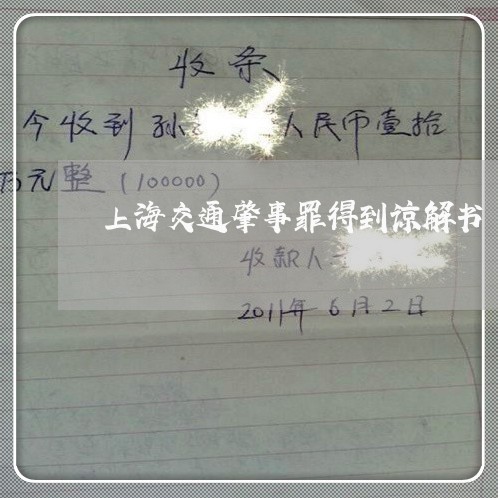 收条
今收到孙 人民币壹拾
万元整（100000）
上海交通肇事罪得到谅解书
收款人
2011年6月2日